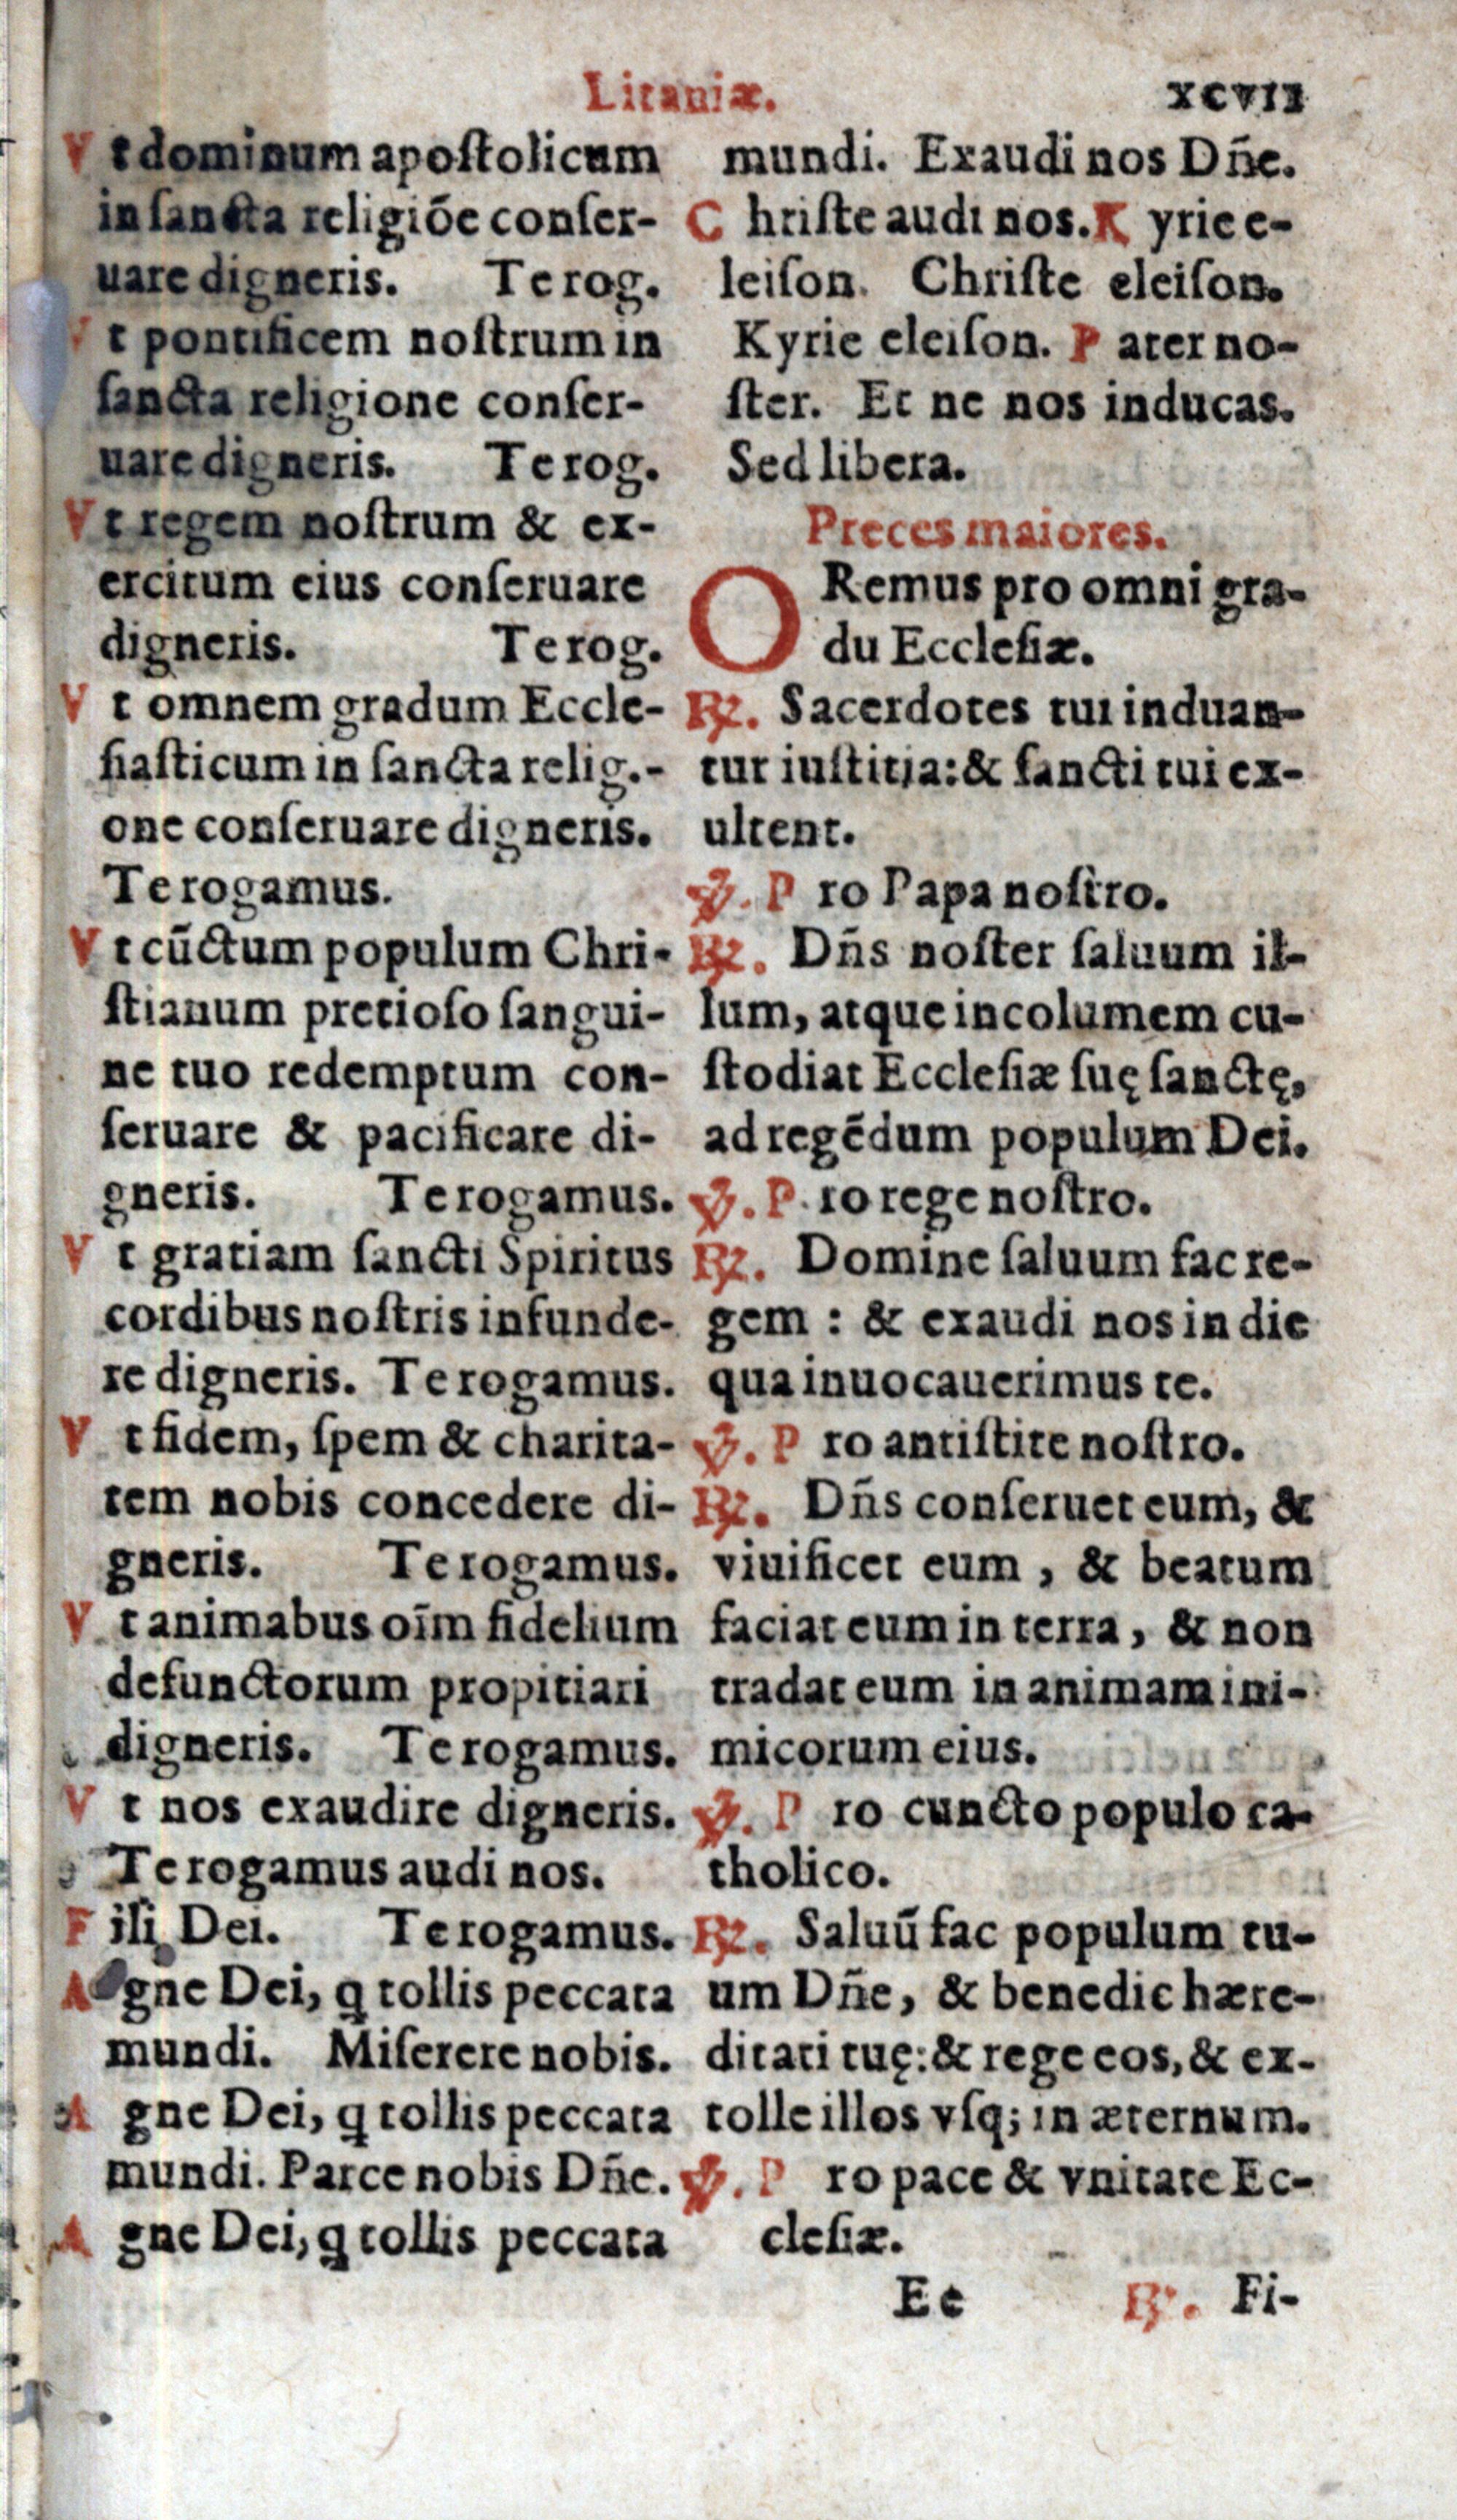 Litaniæ.
xcvii
Vt dominum apoſtolicum
in ſancta religiõe conſer-
uare digneris. Te rog.
Vt pontificem noſtrum in
ſancta religione conſer-
uare digneris. Te rog.
Vt regem noſtrum & ex-
ercitum eius conſeruare
digneris. Te rog.
Vt omnem gradum Eccle-
ſiaſticum in ſancta relig.-
one conſeruare digneris.
Te rogamus.
Vt cũctum populum Chri-
ſtianum pretioſo ſangui-
ne tuo redemptum con-
ſeruare & pacificare di-
gneris. Te rogamus.
Vt gratiam ſancti Spiritus
cordibus noſtris infunde-
re digneris. Te rogamus.
Vt fidem, ſpem & charita-
tem nobis concedere di-
gneris. Te rogamus.
Vt animabus oīm fidelium
defunctorum propitiari
digneris. Te rogamus.
Vt nos exaudire digneris.
Te rogamus audi nos.
Fili Dei. Te rogamus.
Agne Dei, q tollis peccata
mundi. Miſerere nobis.
Agne Dei, q tollis peccata
mundi. Parce nobis Dñe.
Agne Dei, q tollis peccata
mundi. Exaudi nos Dñe.
Chriſte audi nos. Kyrie e-
leiſon. Chriſte eleiſon.
Kyrie eleiſon. Pater no-
ſter. Et ne nos inducas.
Sed libera.
Preces maiores.
ORemus pro omni gra-
du Eccleſiæ.
℟. Sacerdotes tui induan-
tur iuſtitia: & ſancti tui ex-
ultent.
℣. Pro Papa noſtro.
℟. Dñs noſter ſaluum il-
lum, atque incolumem cu-
ſtodiat Eccleſiæ ſuę ſanctę,
ad regẽdum populum Dei.
℣. Pro rege noſtro.
℟. Domine ſaluum fac re-
gem : & exaudi nos in die
qua inuocauerimus te.
℣. Pro antiſtite noſtro.
℟. Dñs conſeruet eum, &
viuificet eum , & beatum
faciat eum in terra , & non
tradat eum in animam ini-
micorum eius.
℣. Pro cuncto populo ca-
tholico.
℟. Saluũ fac populum tu-
um Dñe, & benedic hære-
ditati tuę: & rege eos, & ex-
tolle illos vſq; in æternum.
℣. Pro pace & vnitate Ec-
cleſiæ.
Ee ℟. Fi-